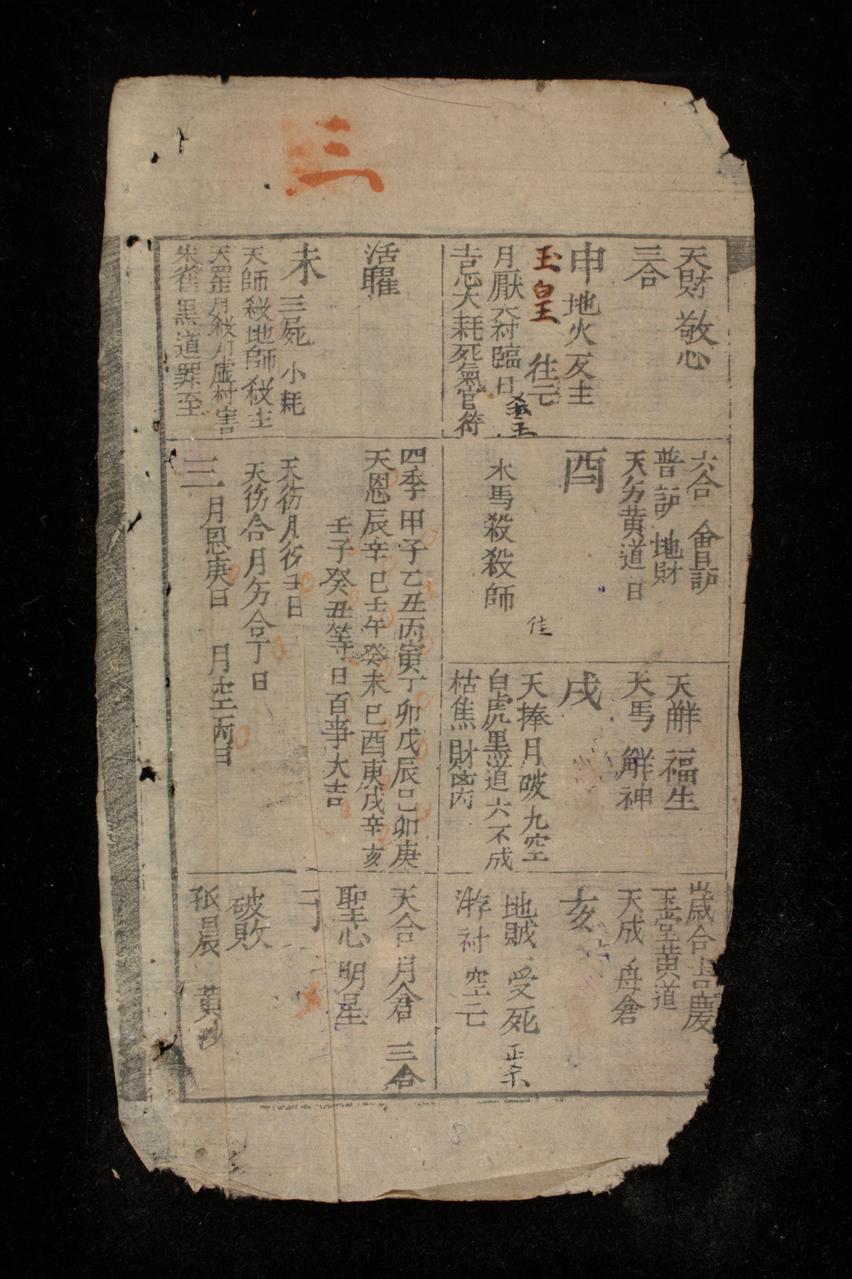 三
天財 敬心
三合
申 地火 反主
玉皇 往亡
月厭 六衬 臨日
吉忌大耗死氣官符
活曜
未 三屍 小耗
天師殺地師殺主
天羅月殺月虛衬害
朱雀黑道罪至
六合 會护
普护 地財
天夯黄道日
酉
水馬殺殺師
隹
四季甲子乙丑丙寅丁卯戊辰己卯庚
天恩辰辛巳壬午癸未巳酉庚戌辛亥
壬子癸丑等日百事大吉
天彷月彷壬日
天彷合月夯合丁日
三月恩庚日 月空丙日
天解 福生
天馬 解神
戌
天捧月破九空
白虎黑道六不成
枯焦財离
歲合吉慶
玉堂黄道
天成 母倉
亥
地賊 受死
游衬 空亡
天合月倉 三合
聖心 明星
破敗